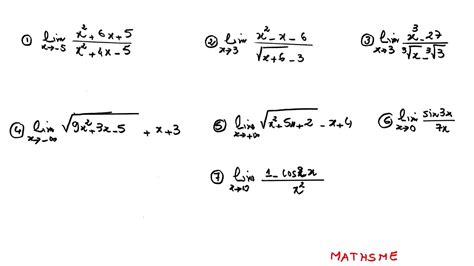 ① lim x→-5 (x²+6x+5)/(x²+4x-5) ② lim x→3 (x²-x-6)/(√(x+6)-3) ③ lim x→3 (x³-27)/(∛x-∛3)
④ lim x→-∞ √(9x²+3x-5) + x+3 ⑤ lim x→+∞ √(x²+5x+2) - x+4 ⑥ lim x→0 sin3x/7x
⑦ lim x→0 (1-cos2x)/x²
MATHSME